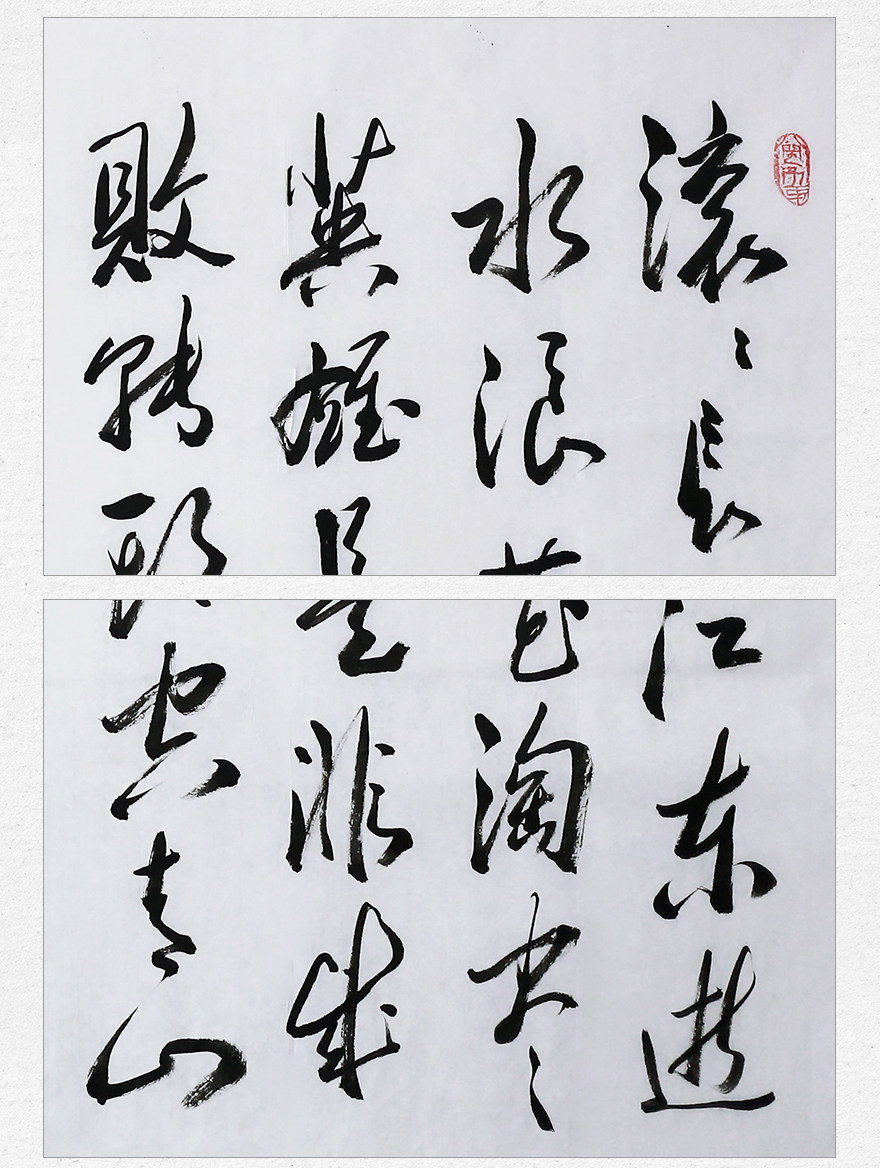 滚〻长江东逝
水浪花淘尽
英雄是非成
败转头空青山